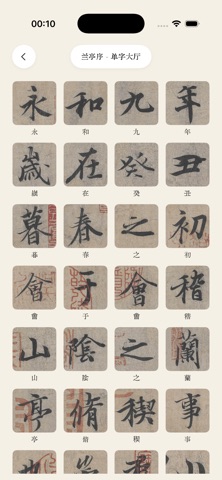 00:10
兰亭序 · 单字大厅
永 和 九 年
永 和 九 年
歲 在 癸 丑
歲 在 癸 丑
暮 春 之 初
暮 春 之 初
會 于 會 稽
會 于 會 稽
山 陰 之 蘭
山 陰 之 蘭
亭 脩 稧 事
亭 脩 稧 事